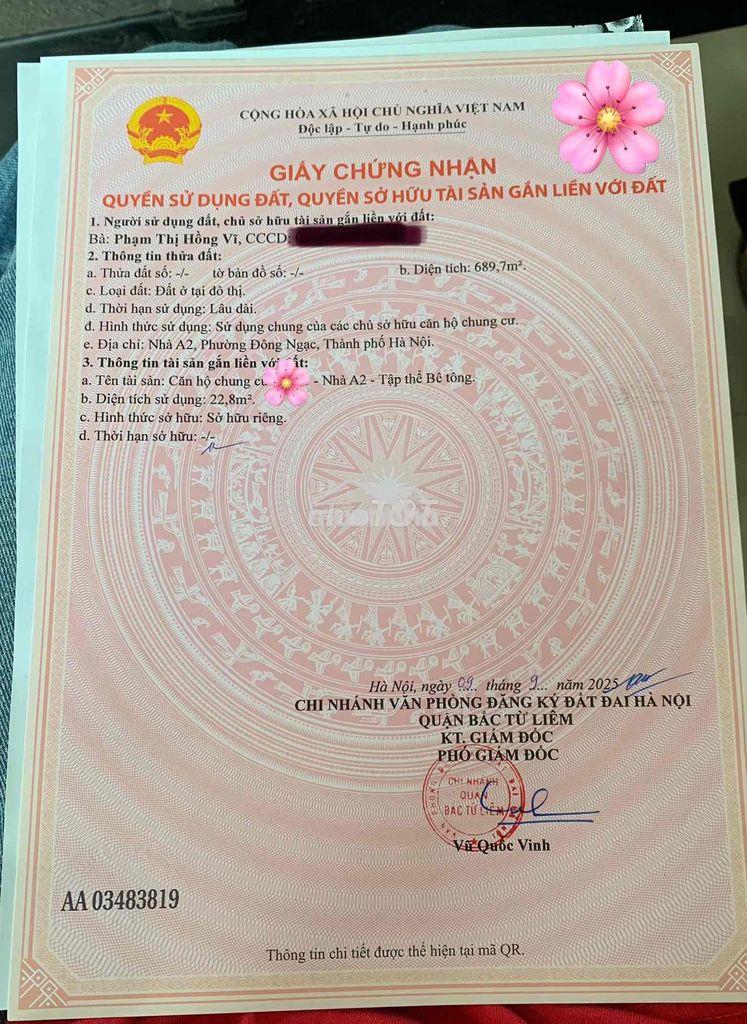 CỘNG HÒA XÃ HỘI CHỦ NGHĨA VIỆT NAM
Độc lập - Tự do - Hạnh phúc
GIẤY CHỨNG NHẬN
QUYỀN SỬ DỤNG ĐẤT, QUYỀN SỞ HỮU TÀI SẢN GẮN LIỀN VỚI ĐẤT
1. Người sử dụng đất, chủ sở hữu tài sản gắn liền với đất:
Bà: Phạm Thị Hồng Vĩ, CCCD:
2. Thông tin thửa đất:
a. Thửa đất số: -/- tờ bản đồ số: -/- b. Diện tích: 689,7m².
c. Loại đất: Đất ở tại đô thị.
d. Thời hạn sử dụng: Lâu dài.
đ. Hình thức sử dụng: Sử dụng chung của các chủ sở hữu căn hộ chung cư.
e. Địa chỉ: Nhà A2, Phường Đông Ngạc, Thành phố Hà Nội.
3. Thông tin tài sản gắn liền với đất:
a. Tên tài sản: Căn hộ chung - Nhà A2 - Tập thể Bê tông.
b. Diện tích sử dụng: 22,8m².
c. Hình thức sở hữu: Sở hữu riêng.
d. Thời hạn sở hữu: -/-
Hà Nội, ngày 09 tháng 9 năm 2025
CHI NHÁNH VĂN PHÒNG ĐĂNG KÝ ĐẤT ĐAI HÀ NỘI
QUẬN BẮC TỪ LIÊM
KT. GIÁM ĐỐC
PHÓ GIÁM ĐỐC
CHI NHÁNH
QUẬN
BẮC TỪ LIÊM
Vũ Quốc Vinh
AA 03483819
Thông tin chi tiết được thể hiện tại mã QR.